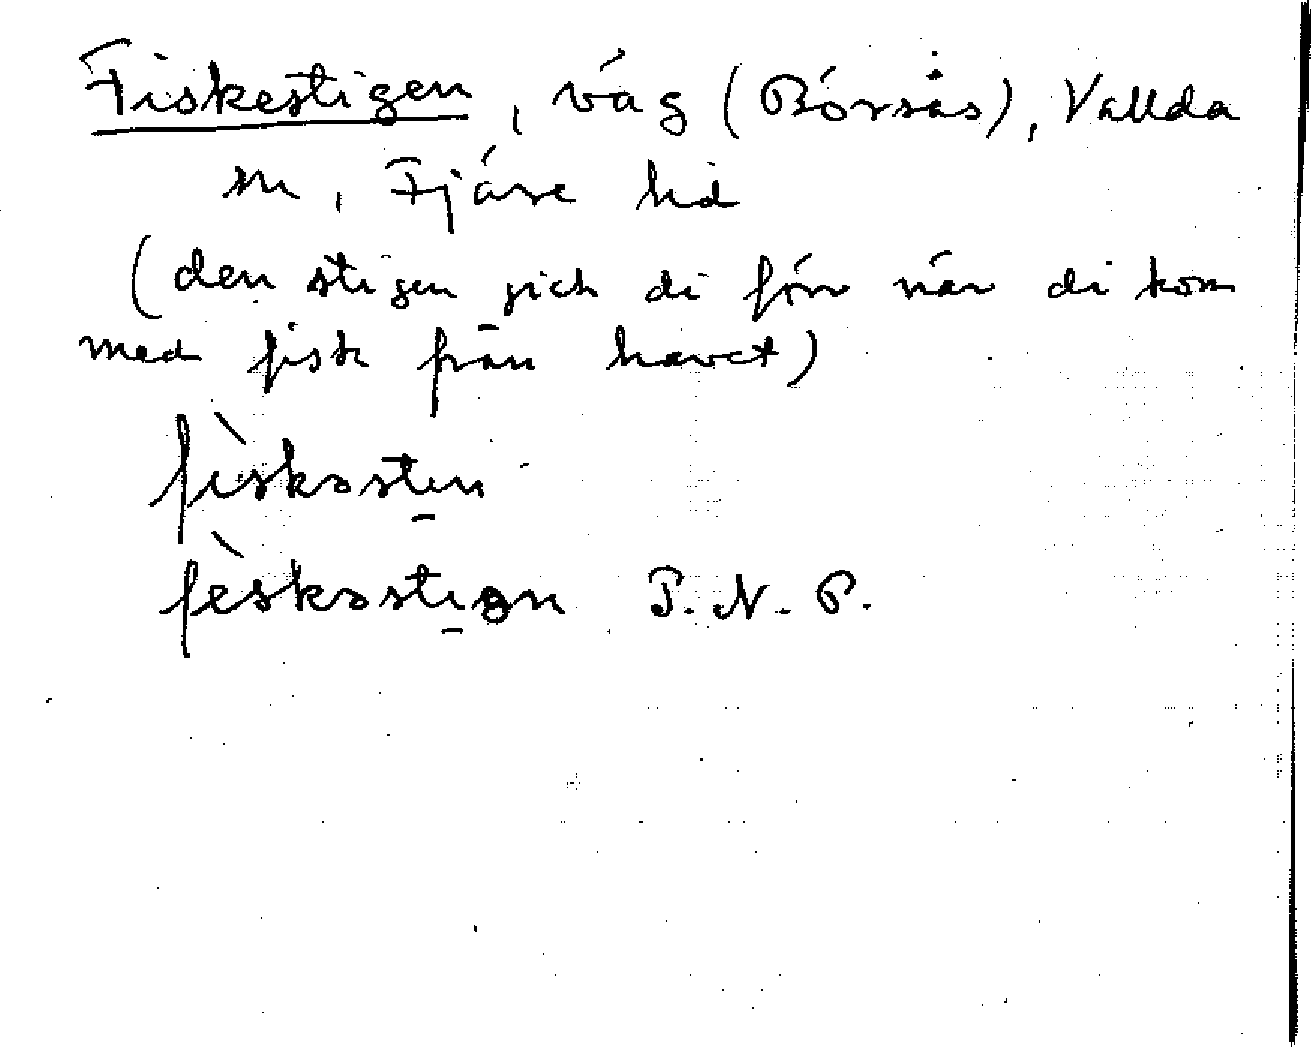 Fiskestigen, väg (Börsås), Vallda
sn, Fjäre hd
(den stigen gick di förr när di kom
med fisk från havet)
fiskəsten
feskəstıgən P. N. P.